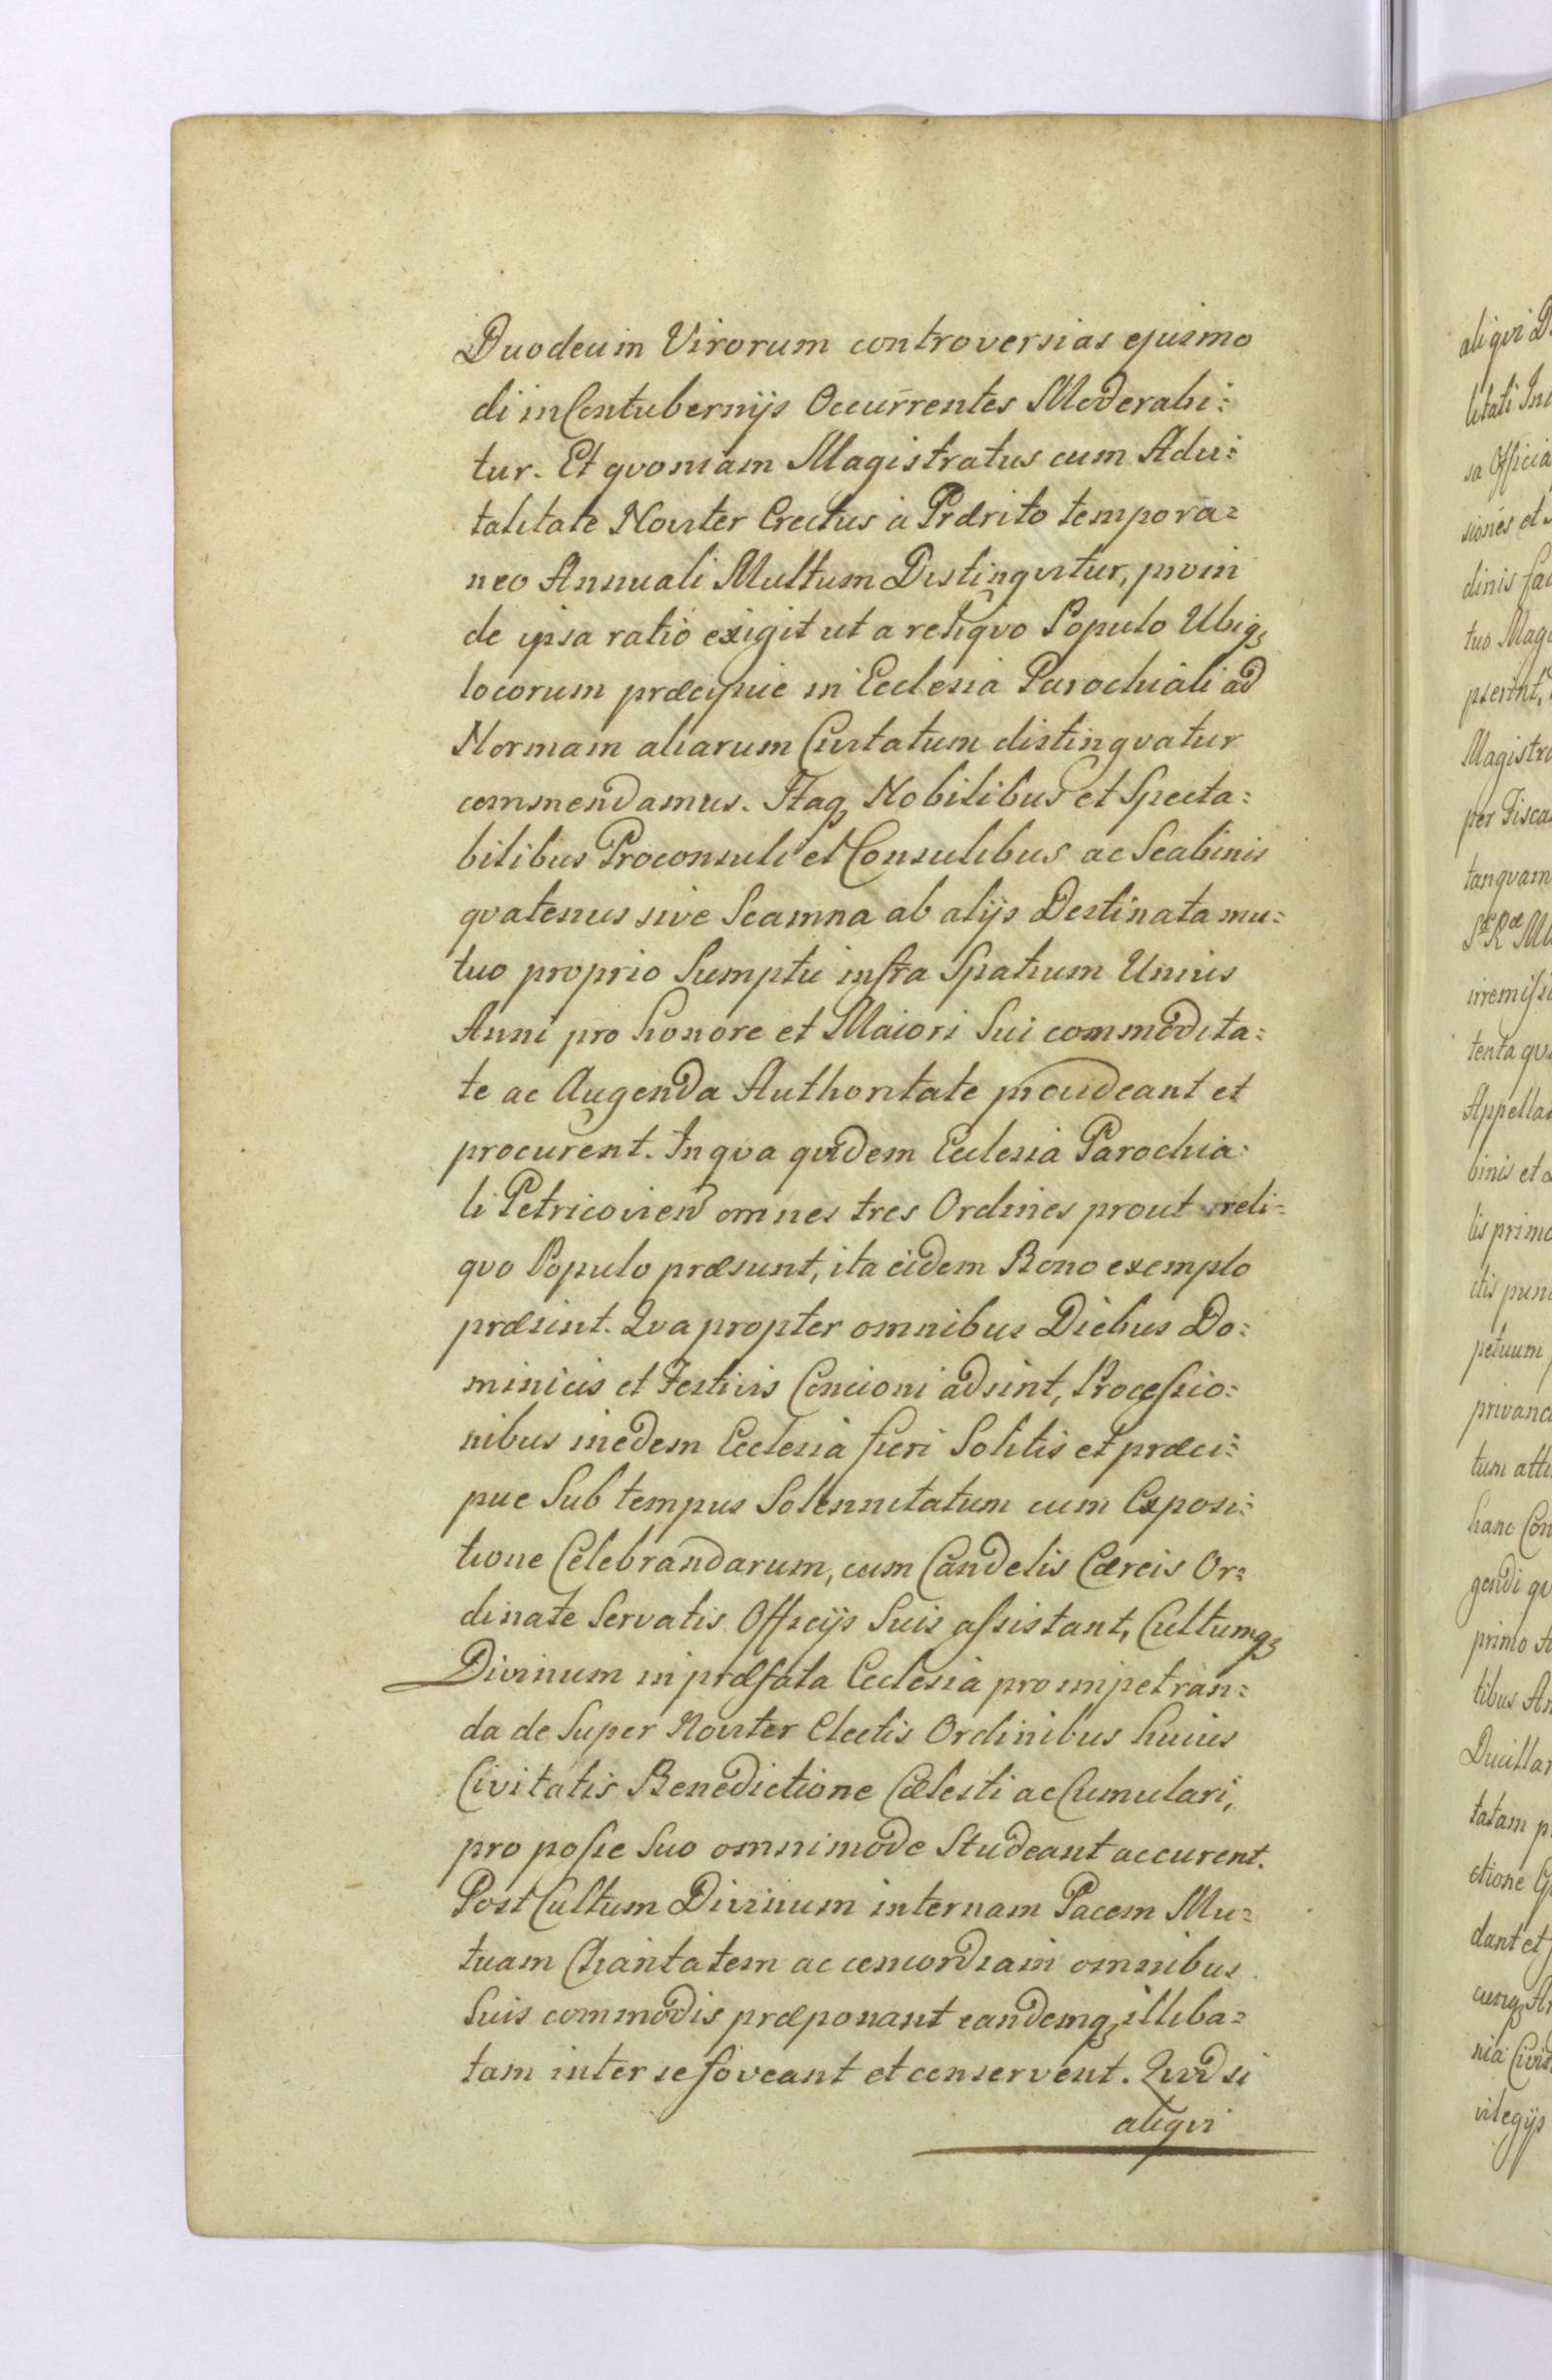 Duodecim Virorum controversias ejusmo
di in Contubernijs Occurrentes Moderabi:
tur. Et qvoniam Magistratus cum Advi:
talitate Noviter Erectus à Præterito tempora=
neo Annuali Multum Distingvitur, proin
de ipsa ratio exigit ut a reliqvo Populo Ubiq3
locorum præcipuie in Ecclesia Parochiali ad
Normam aliarum Civitatum distingvatur
commendamus. Itaq3 Nobilibus et Specta:
bilibus Proconsuli et Consulibus ac Scabinis
qvatenus sive Scamna ab alijs Destinata mu:
tuo proprio Sumptu infra Spatium Unius
Anni pro honore et Maiori Sui commodita:
te ac Augenda Authoritate provideant et
procurent. In qva qvidem Ecclesia Parochia:
li Petricovien omnes tres Ordines prout reli=
qvo Populo præsunt, ita eidem Bono exemplo
præsint. Qvapropter omnibus Diebus Do:
minicis et Festivis Concioni adsint, Processio:
nibus in edem Ecclesia fieri Solitis et præci:
pue Sub tempus Solennitatum cum Exposi:
tione Celebrandarum, cum Candelis Cæreis Or:
dinate Servatis Officijs Suis assistant, Cultumq3
Divinum in præfata Ecclesia pro impetran:
da de Super Noviter Electis Ordinibus huius
Civitatis Benedictione Cælesti ac Cumulari,
pro posse Suo omnimode Studeant accurent.
Post Cultum Divinum internam Pacem Mu:
tuam Charitatem ac concordiam omnibus
Suis commodis præponant eandemq3 illiba=
tam inter se foveant et conservent. Qvod si
aliqvi